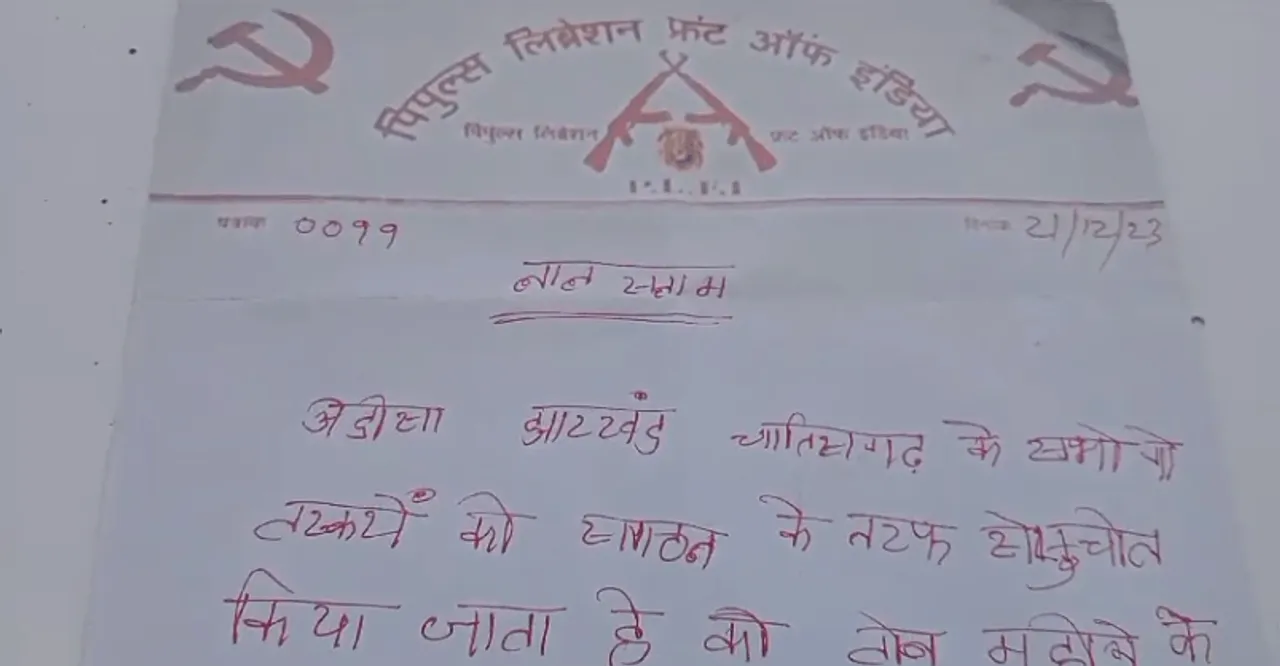 पिपुल्स लिब्रेशन फ्रंट ऑफ इंडिया
पिपुल्स लिब्रेशन फ्रंट ऑफ इंडिया
पत्रांक 0099 दिनांक 21/12/23
लाल सलाम
ओडीसा झारखंड चातिसगढ़ के सभी गो
तस्करों को संगठन के तरफ से सुचीत
किया जाता है की तीन महीने के